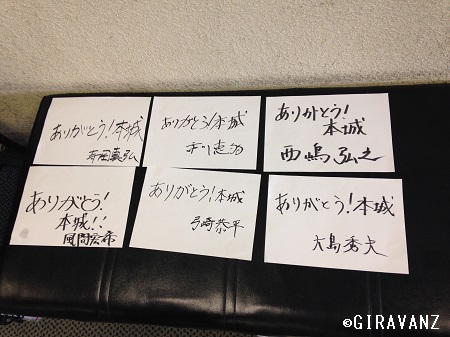 ありがとう!本城
寺岡真弘
ありがとう!本城
ありがとう!
本城
西嶋弘之
ありがとう!
本城!!
風間宏希
ありがとう!本城
弓崎恭平
ありがとう!本城
大島秀夫
©GIRAVANZ